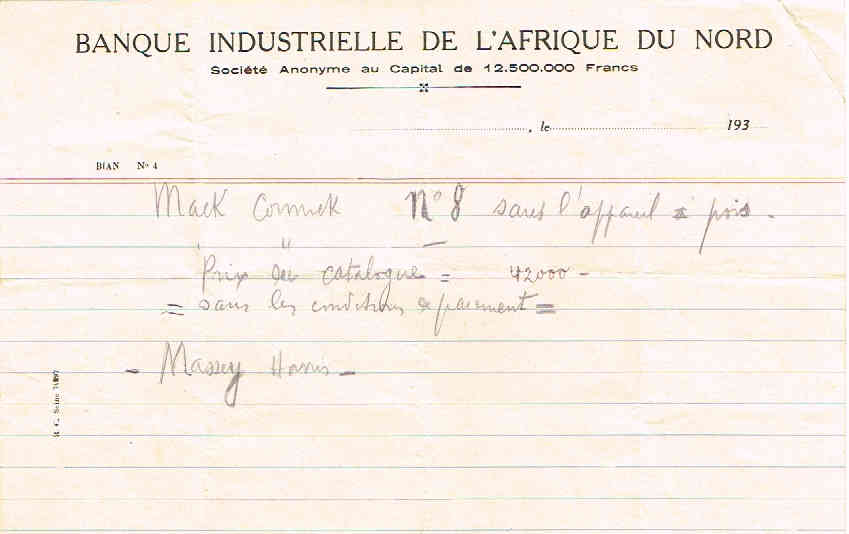 BANQUE INDUSTRIELLE DE L'AFRIQUE DU NORD
Société Anonyme au Capital de 12.500.000 Francs
, le 193
BIAN N° 4
Mack Cormick N° 8 sans l'appareil à pois -
" -
Prix du catalogue = 42000 -
= sans les conditions de paiement =
- Massey Harris -